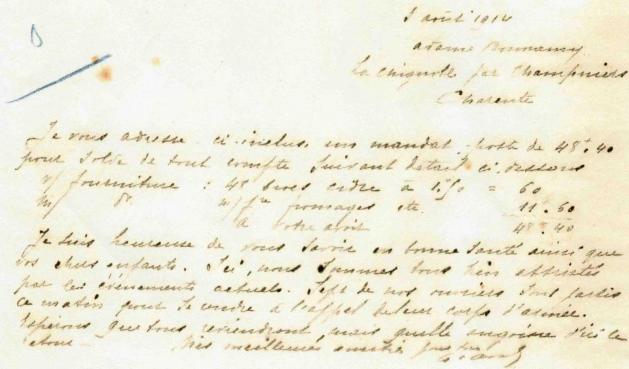 3 août 1914
adame Bonnamy
La Chignolle par Champniers
Charente
Je vous adresse ci-inclus un mandat-poste de 48f.40
pour solde de tout compte suivant détail ci-dessous
v/ fourniture : 48 cidre à 1f.50 = 60
m/ do m/ fre fromages etc. 11.60
à votre avoir 48.40
Je suis heureuse de vous savoir en bonne santé ainsi que
vos chers enfants. Ici, nous sommes tous bien attristés
par les événements actuels. Sept de nos ouvriers sont partis
ce matin pour se rendre à l'appel de leur corps d'armée.
Espérons que tous reviendront, mais quelle angoisse d'ici ce
retour — Mes meilleures amitiés pour